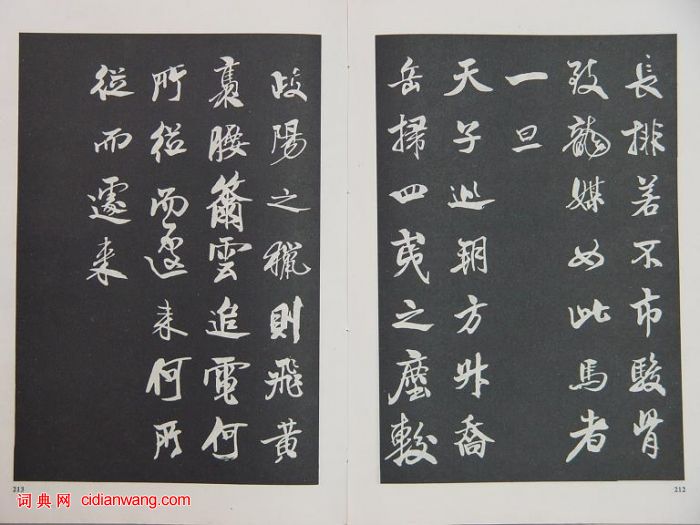 長排若不市駿骨
致龍媒如此馬者
一旦
天子巡朔方升喬
岳掃四夷之塵較
岐陽之獵則飛黃
褭腰籋雲追電何
所從而遽来何所
從而遽来
213
212
词典网 cidianwang.com